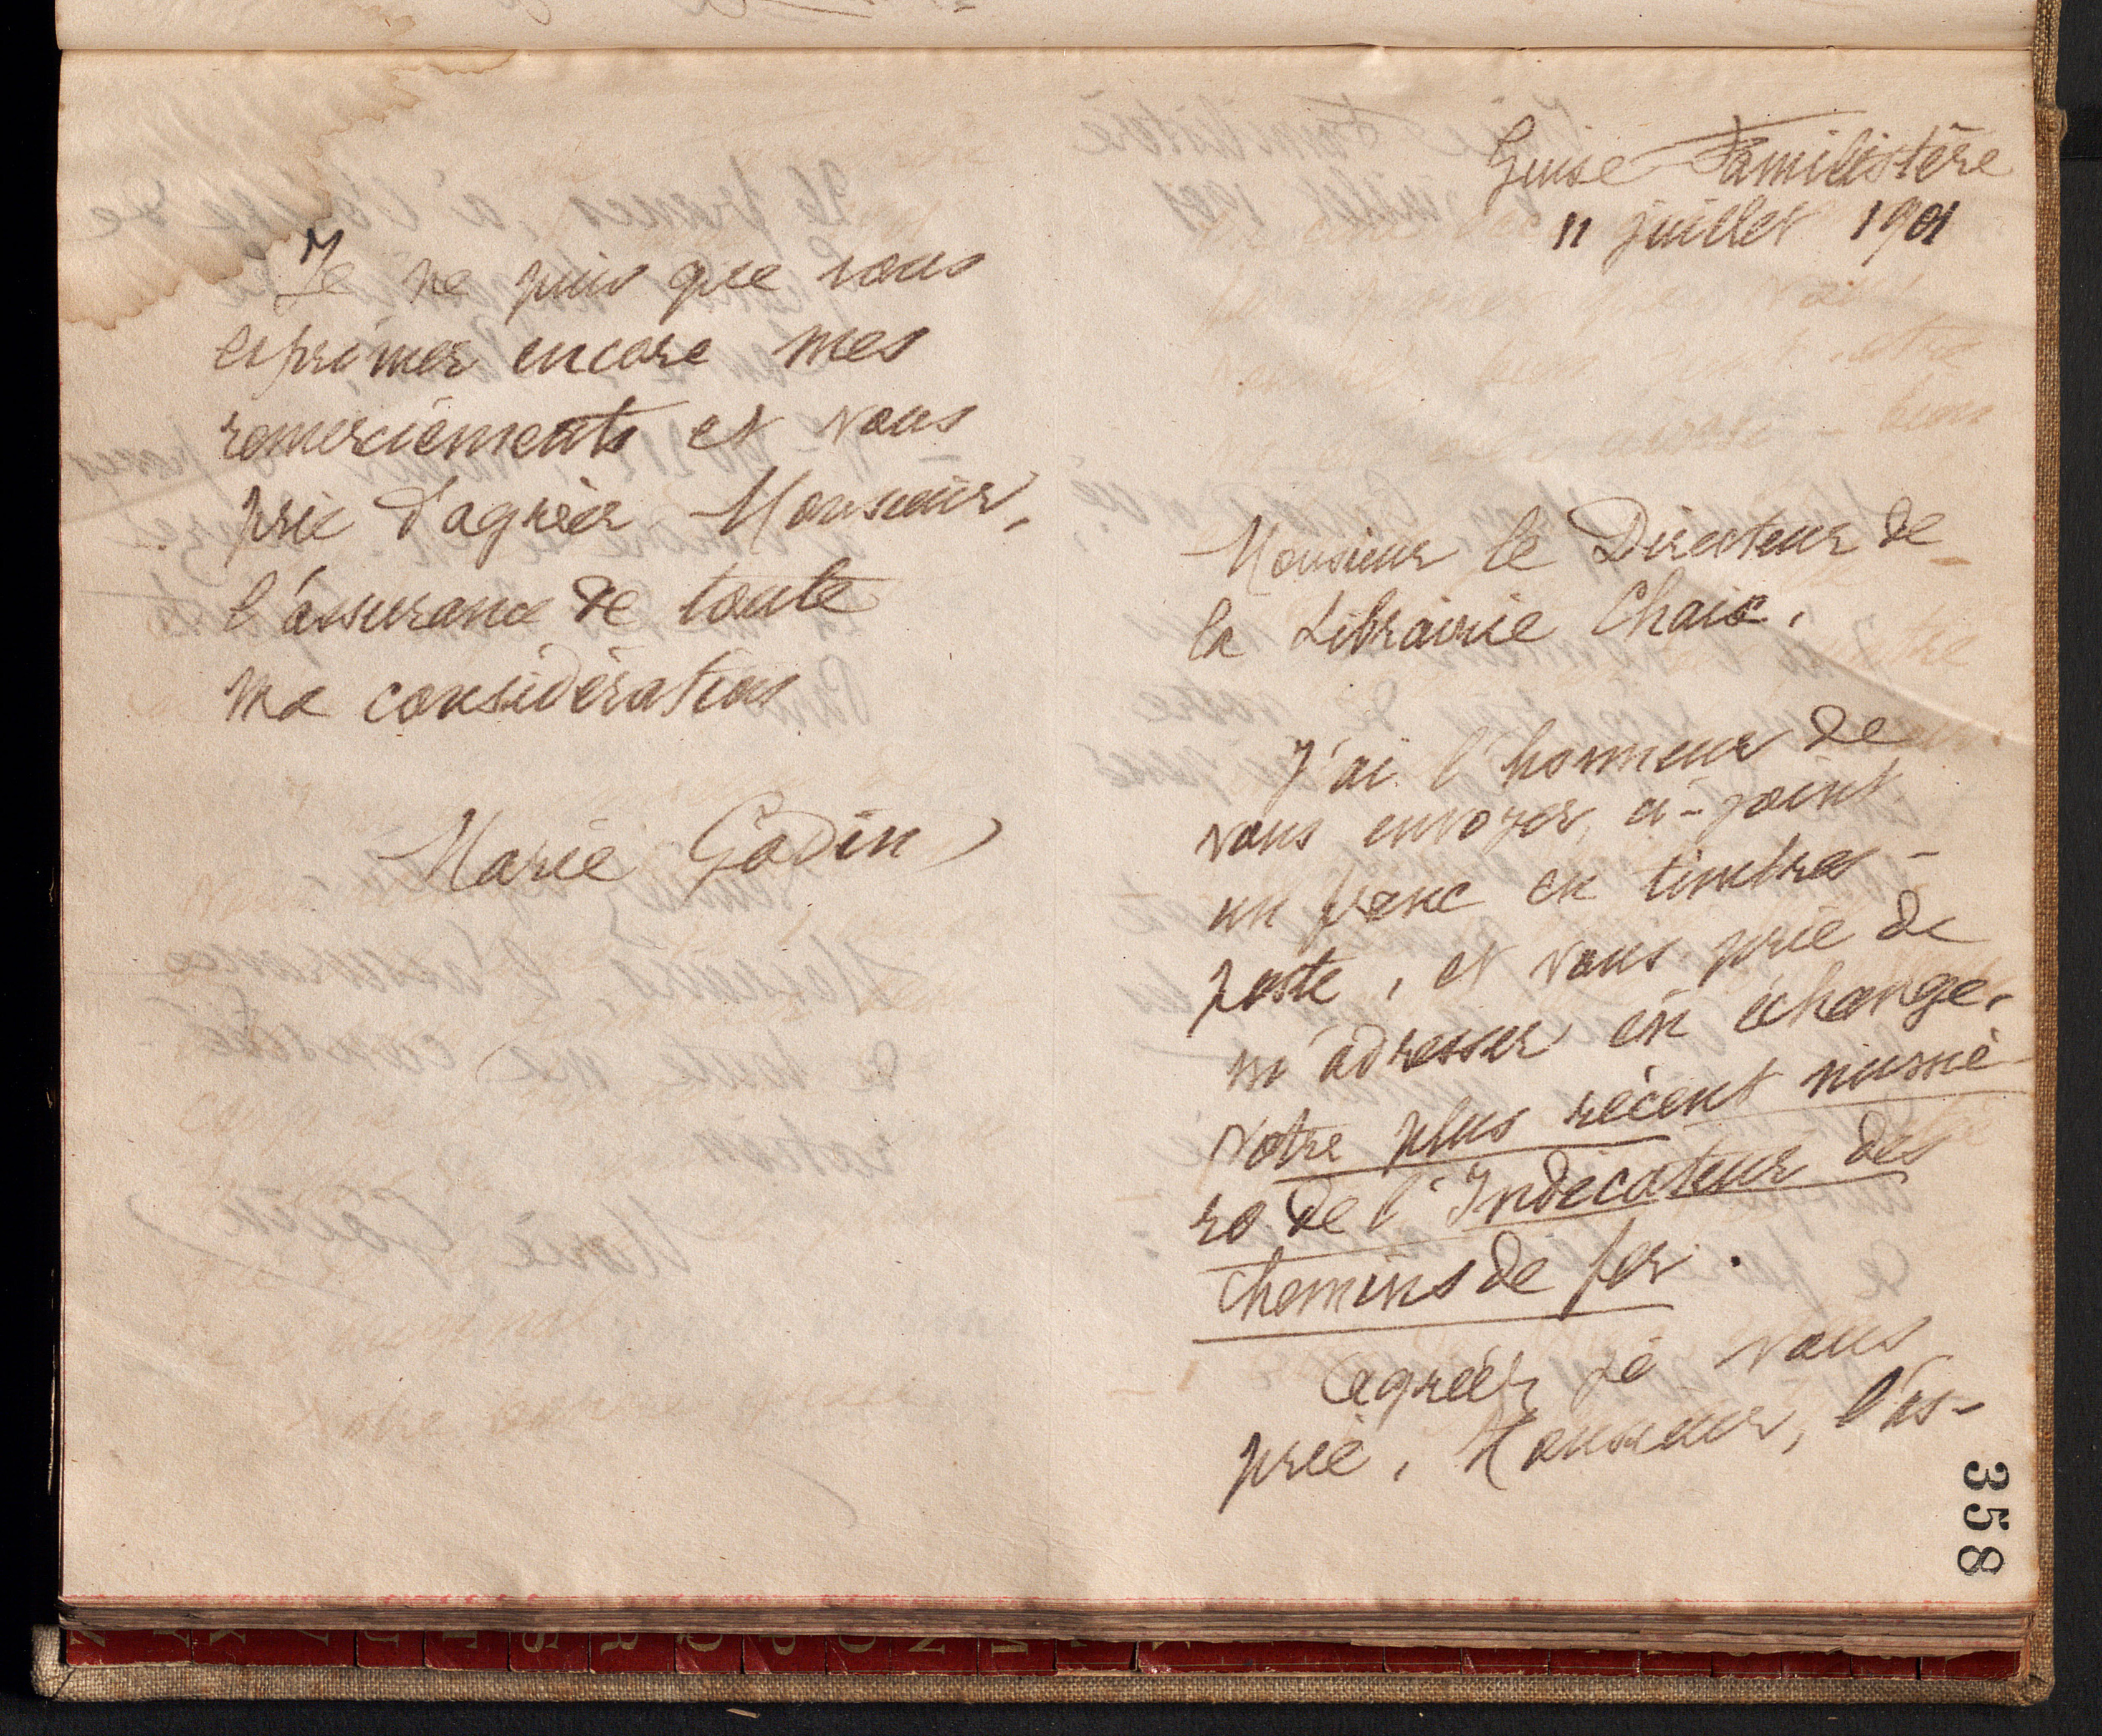 Je ne puis que vous
exprimer encore mes
remerciements et vous
prie d'agréer Monsieur,
l'assurance de toute
ma considération
Marie Godin
Guise Familistère
11 juillet 1901
Monsieur le Directeur de
la Librairie Chaix,
J'ai l'honneur de
vous envoyer, ci-joint
un franc en timbres-
poste, et vous prie de
m'adresser en échange,
votre plus récent numé
ro de l'Indicateur des
chemins de fer.
Agréez je vous
prie, Monsieur, l'as-
358